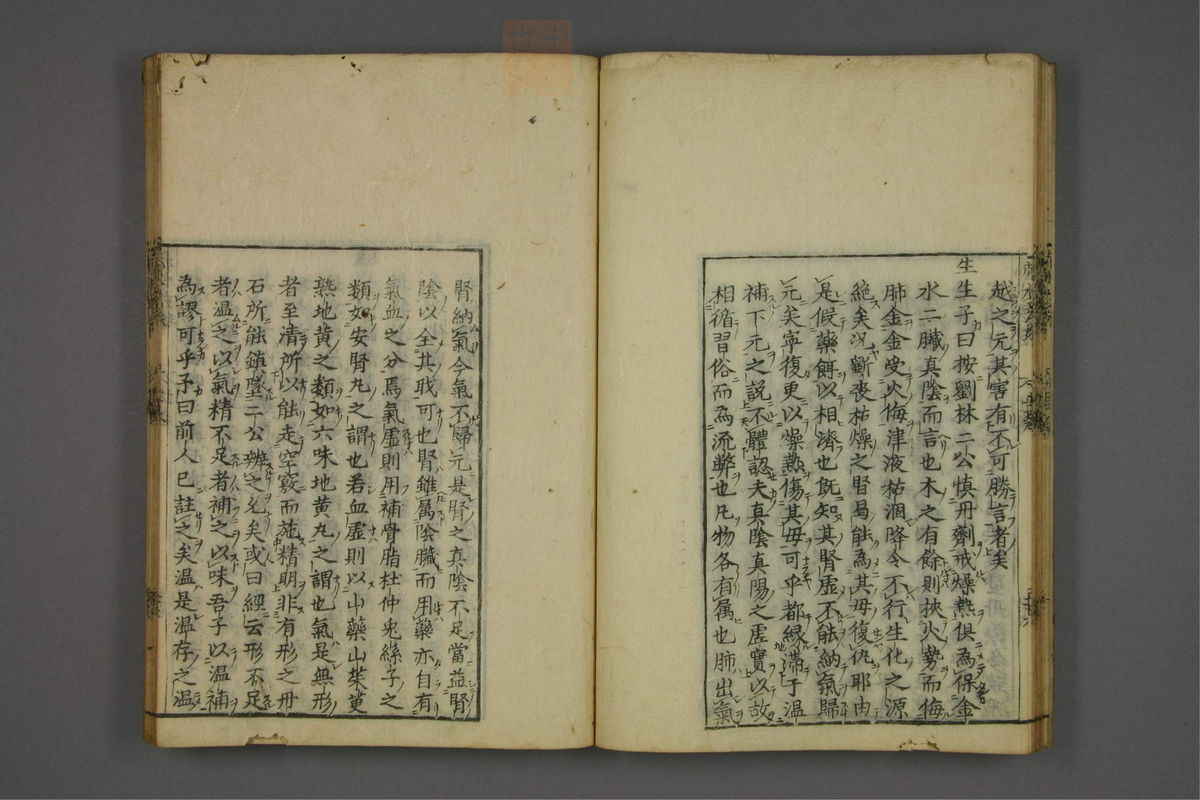 越之亢其害有不可勝言者矣
生生子曰按劉林二公慎丹劑戒燥熱俱為保金
水二臟真陰而言也木之有餘則挾火勢而侮
肺金金受火侮津液枯涸降令不行生化之源
絕矣況斲喪枯燥之腎曷能為其母復仇耶由
是假藥餌以相濟也既知其腎虛不能納氣歸
元矣寧復更以燥熱傷其母可乎都緣滯于溫
補下元之說不體認夫真陰真陽之虛實以故
相循習俗而為流弊也凡物各有属也肺出氣
腎納氣今氣不歸元是腎之真陰不足當益腎
陰以全其職可也腎雖属陰臟而用藥亦自有
氣血之分焉氣虛則用補骨脂杜仲兎絲子之
類如安腎丸之謂也若血虛則以山藥山茱萸
熟地黄之類如六味地黄丸之謂也氣是無形
者至清所以能走空竅而施精明非有形之丹
石所能鎮墜二公辨之允矣或曰經云形不足
者溫之以氣精不足者補之以味吾子以溫補
為謬可乎予曰前人已註之矣溫是溫存之溫